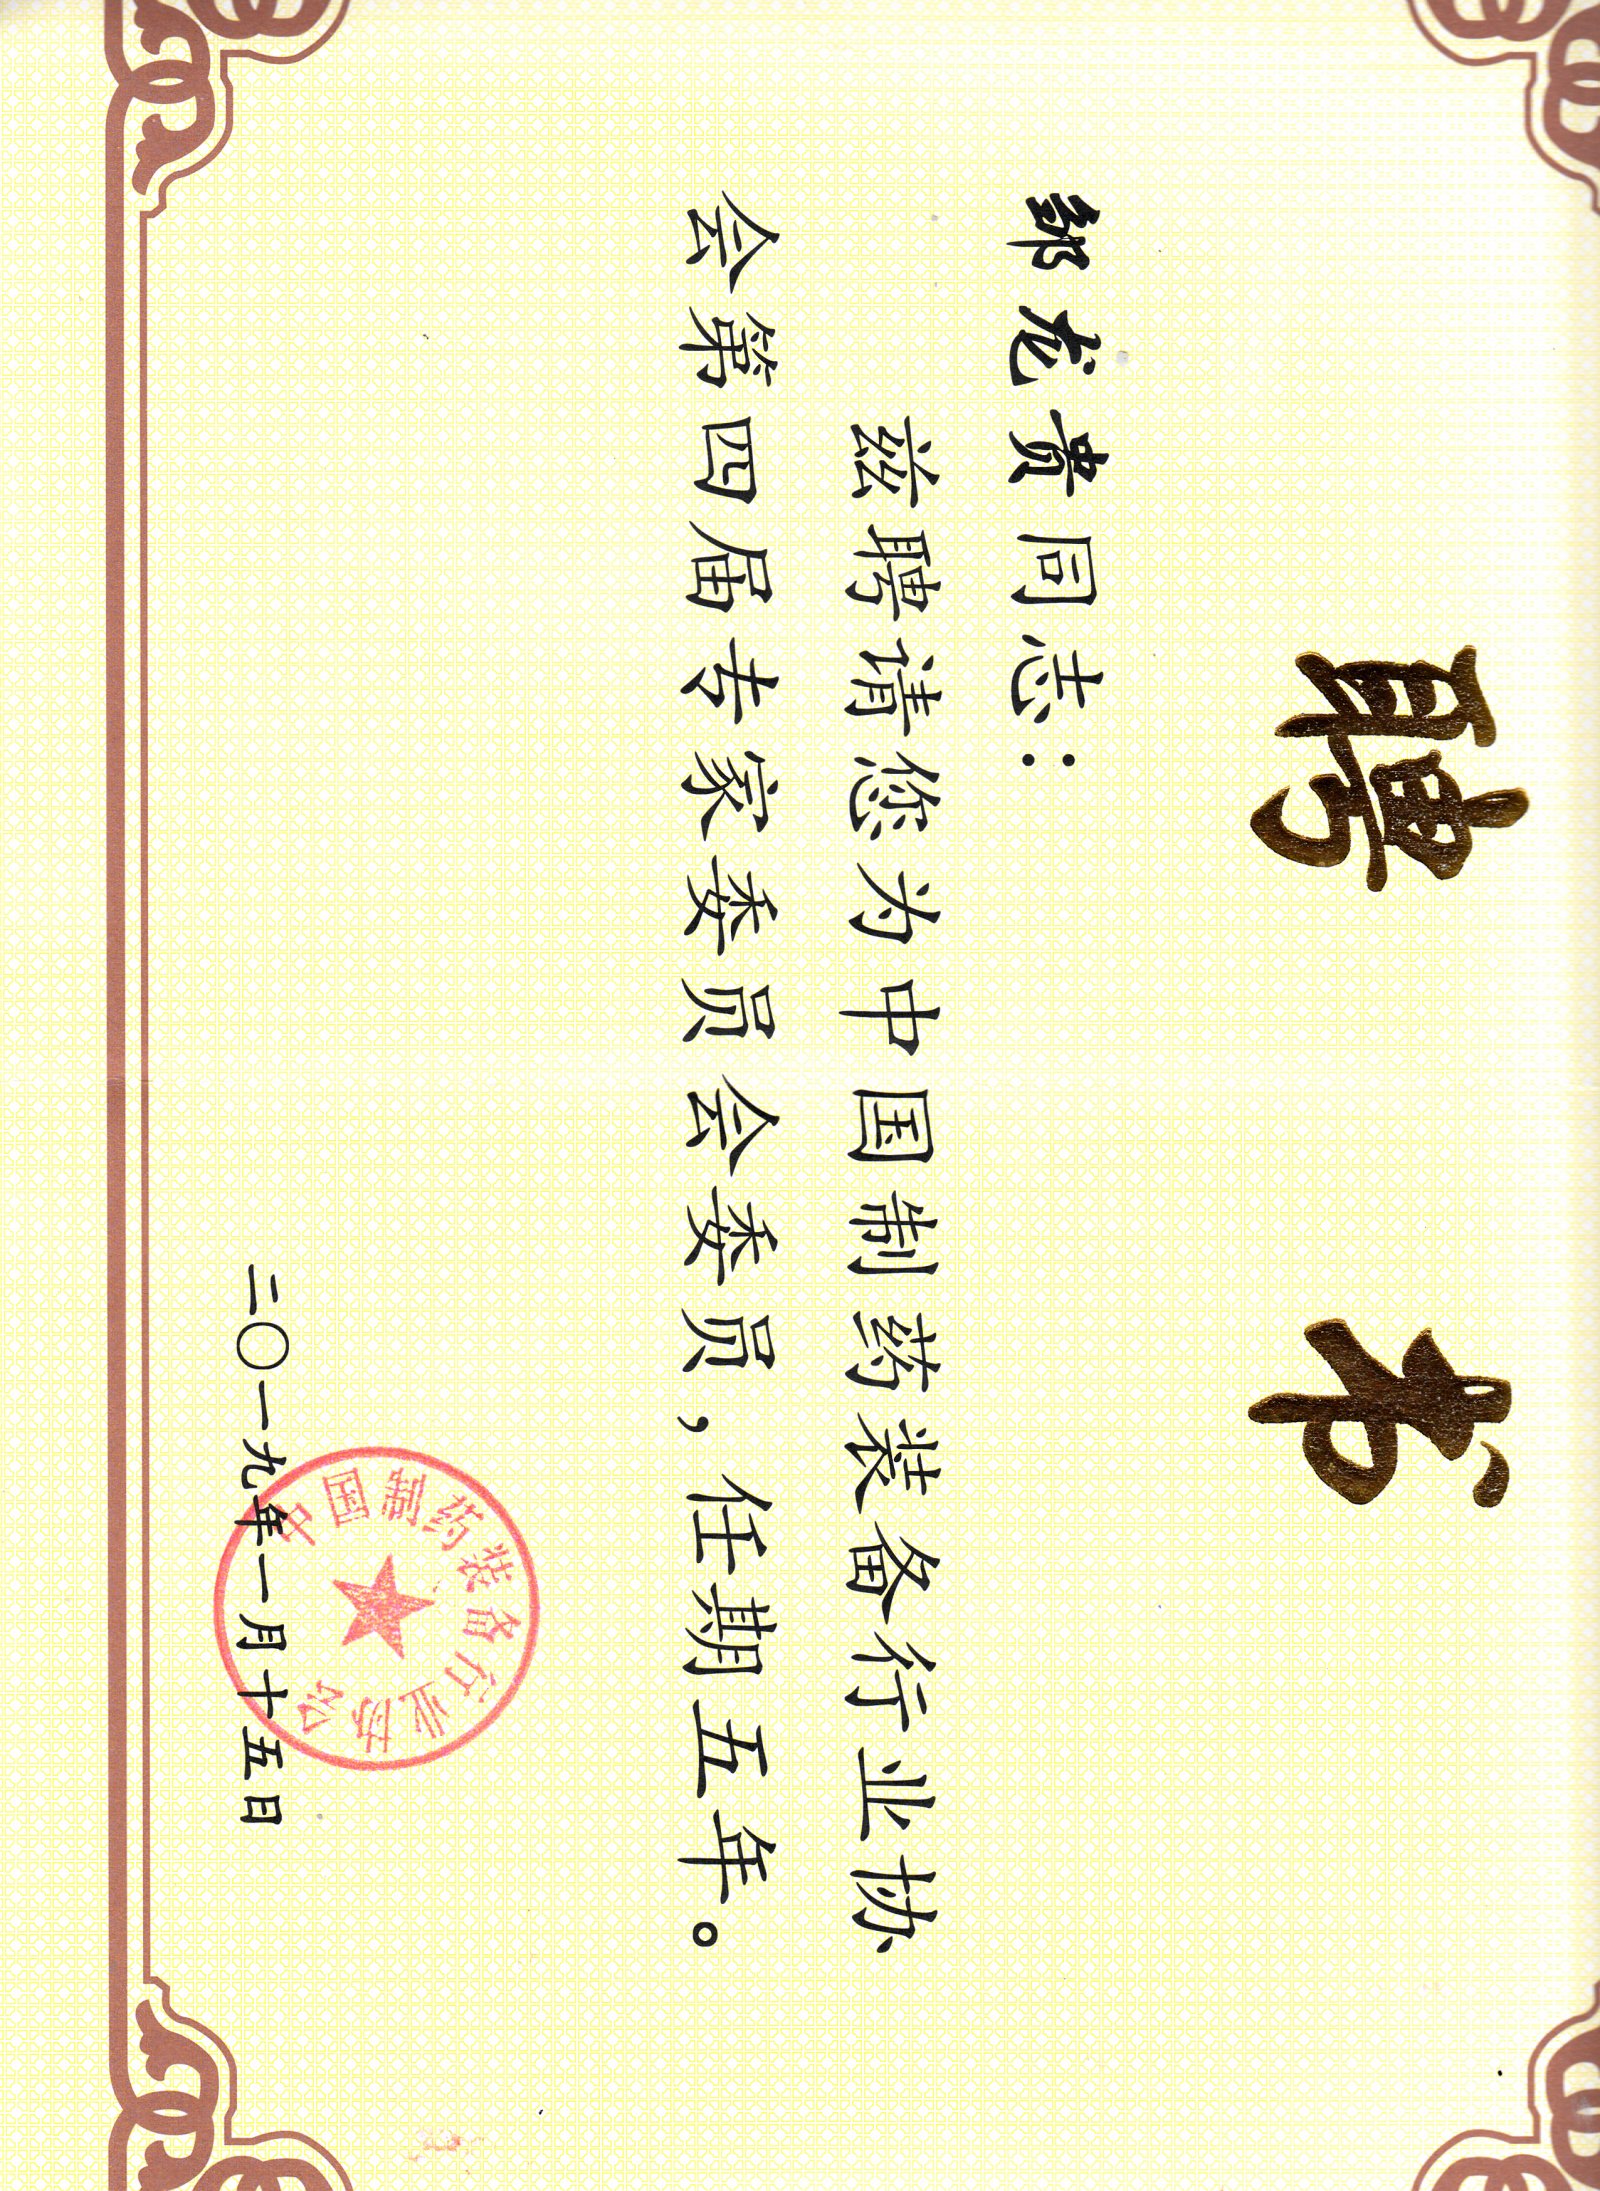 聘 书
邹龙贵同志：
兹聘请您为中国制药装备行业协
会第四届专家委员会委员，任期五年。
中国制药装备行业协会
二〇一九年一月十五日